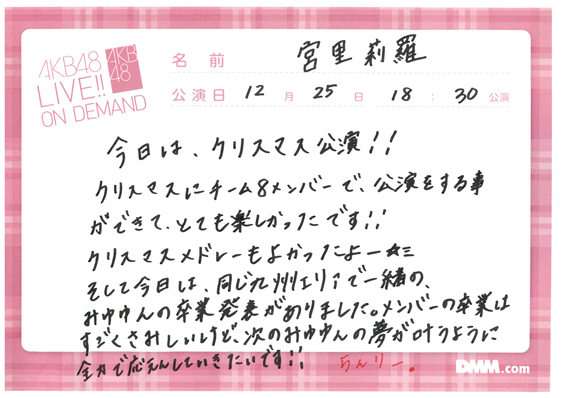 AKB48
LIVE!!
ON DEMAND
AKB
48
名前 宮里莉羅
公演日 12月25日 18:30公演
今日は、クリスマス公演!!
クリスマスにチーム8メンバーで、公演をする事
ができて、とても楽しかったです!!
クリスマスメドレーもよかったよー☆ミ
そして今日は、同じ九州エリアで一緒の、
みゆゆんの卒業発表がありました。メンバーの卒業は
すごくさみしいけど、次のみゆゆんの夢が叶うように
全力で応えんしていきたいです!!
りんりー。
DMM.com